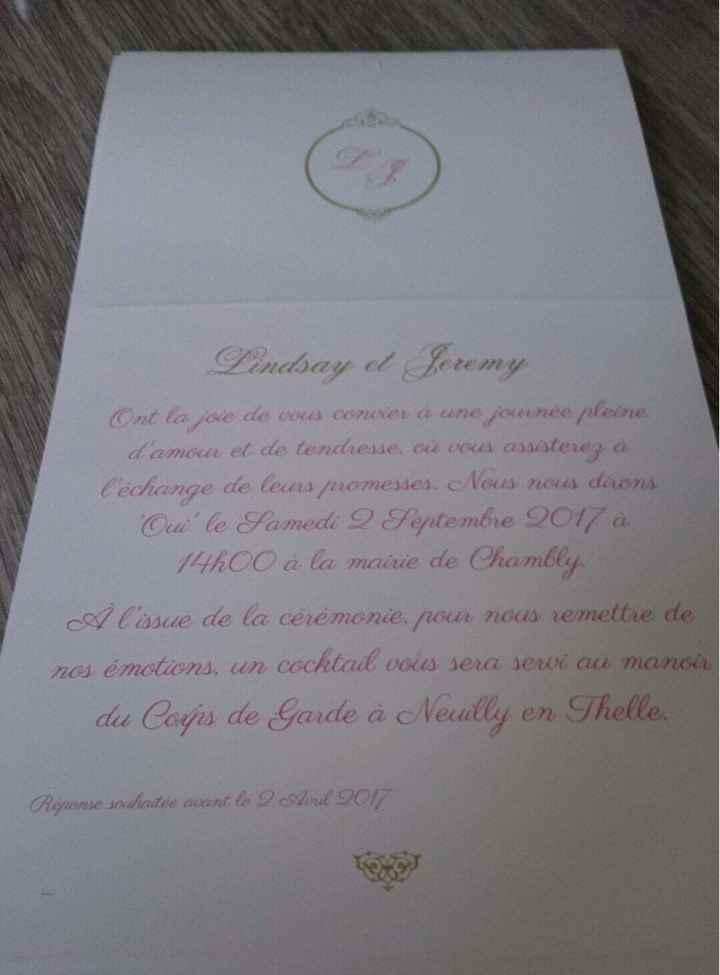 L J
Lindsay et Jeremy
Ont la joie de vous convier à une journée pleine
d'amour et de tendresse, où vous assisterez à
l'échange de leurs promesses. Nous nous dirons
'Oui' le Samedi 2 Septembre 2017 à
14h00 à la mairie de Chambly.
À l'issue de la cérémonie, pour nous remettre de
nos émotions, un cocktail vous sera servi au manoir
du Corps de Garde à Neuilly en Thelle.
Réponse souhaitée avant le 2 Avril 2017